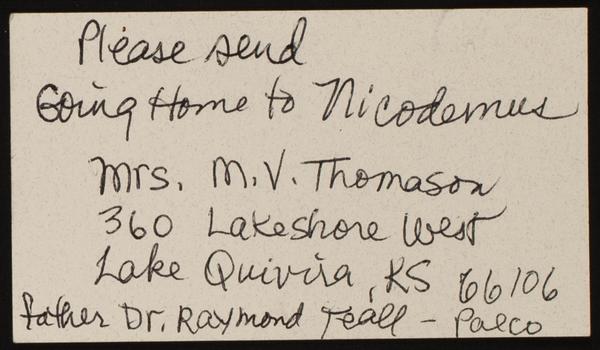 Please send
Going Home to Nicodemus
Mrs. M.V. Thomason
360 Lakeshore West
Lake Quivira, KS 66106
father Dr. Raymond Teall - Palco